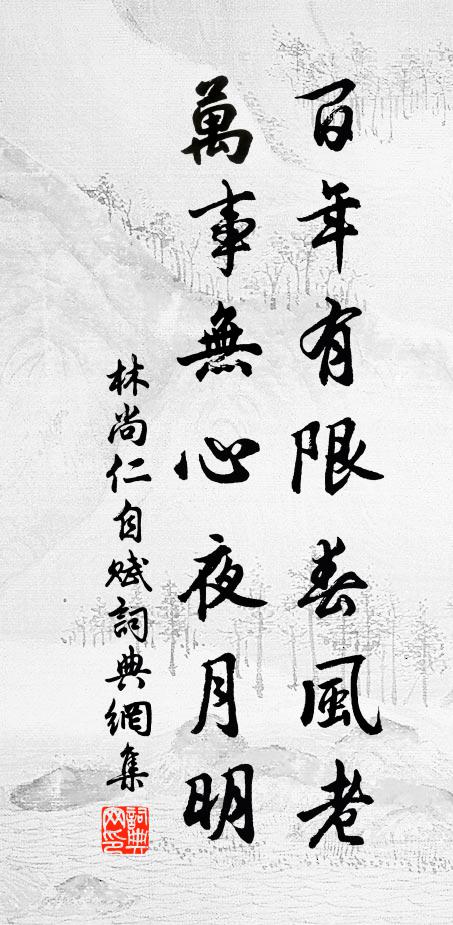 百年有限春風老
萬事無心夜月明
林尚仁自賦詞典網集
詞典
網印